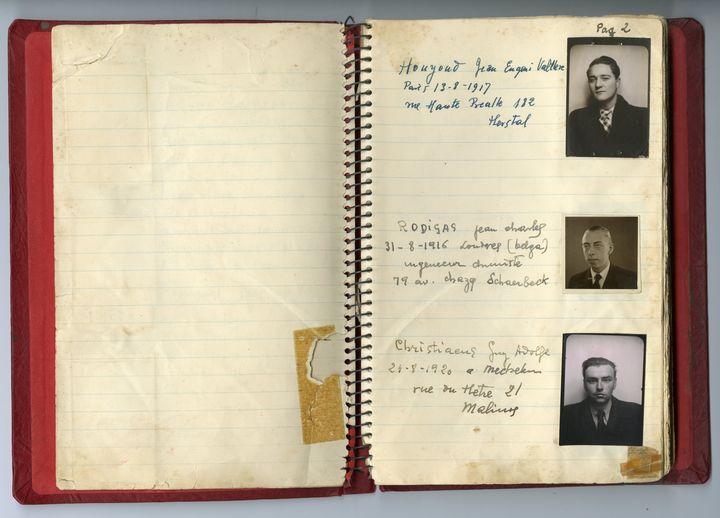 Pag 2
Houyoud Jean Eugene
Paris 13-8-1917
rue Haute Prealle 182
Herstal
RODIGAS jean charles
31-8-1916 Londres (belga)
ingenieur chimiste
79 av. chazal Schaerbeck
Christiaens Guy Adolfe
21-8-1920 a Mechelen
rue du Hetre 21
Malines